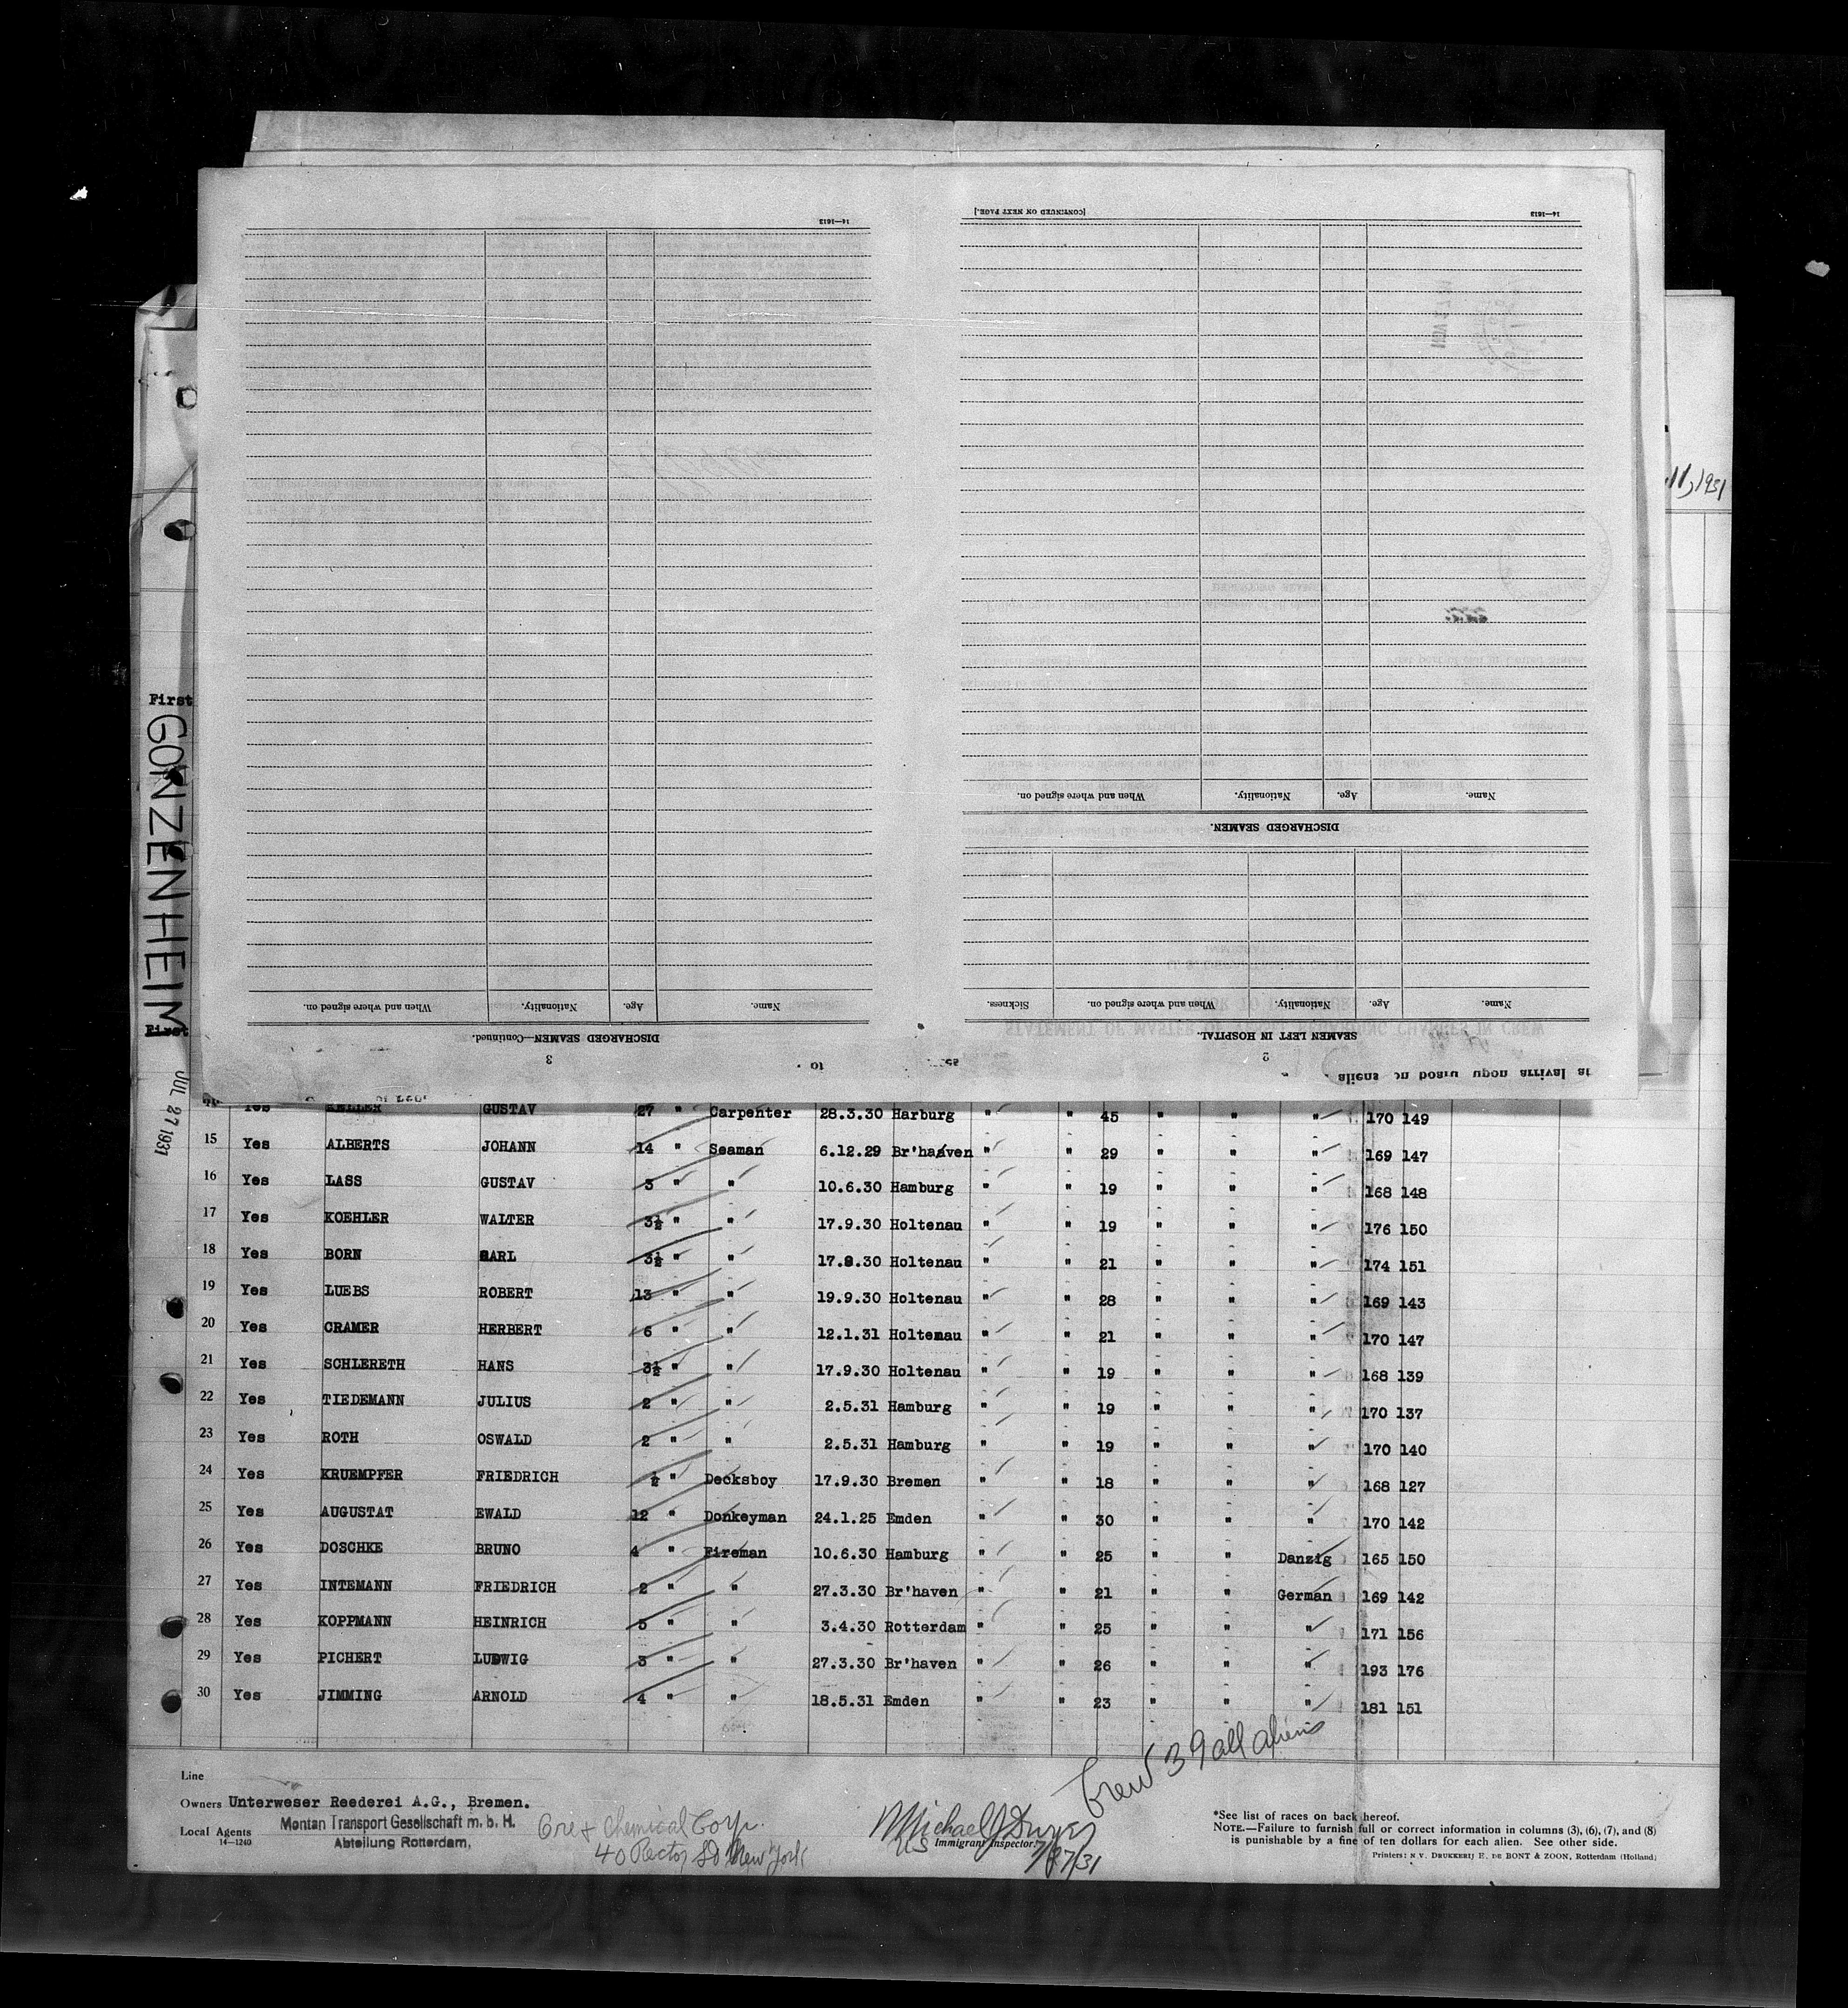 14—1613
[CONTINUED ON NEXT PAGE.]
14—1613
11, 1931
Name. Age. Nationality. When and where signed on.
DISCHARGED SEAMEN.
Name. Age. Nationality. When and where signed on. Sickness.
SEAMEN LEFT IN HOSPITAL.
2
Name. Age. Nationality. When and where signed on.
DISCHARGED SEAMEN—Continued.
3
aliens on board upon arrival at
to
First
GONZENHEIM
First
JUL 27 1931
Yes KELLER GUSTAV 27 " Carpenter 28.3.30 Harburg " " 45 " " " 170 149
15 Yes ALBERTS JOHANN 14 " Seaman 6.12.29 Br'haaven " " 29 " " " 169 147
16 Yes LASS GUSTAV 3 " " 10.6.30 Hamburg " " 19 " " " 168 148
17 Yes KOEHLER WALTER 3½ " " 17.9.30 Holtenau " " 19 " " " 176 150
18 Yes BORN CARL 3½ " " 17.8.30 Holtenau " " 21 " " " 174 151
19 Yes LUEBS ROBERT 13 " " 19.9.30 Holtenau " " 28 " " " 169 143
20 Yes CRAMER HERBERT 6 " " 12.1.31 Holtenau " " 21 " " " 170 147
21 Yes SCHLERETH HANS 3½ " " 17.9.30 Holtenau " " 19 " " " 168 139
22 Yes TIEDEMANN JULIUS 2 " " 2.5.31 Hamburg " " 19 " " " 170 137
23 Yes ROTH OSWALD 2 " " 2.5.31 Hamburg " " 19 " " " 170 140
24 Yes KRUEMPFER FRIEDRICH ½ " Decksboy 17.9.30 Bremen " " 18 " " " 168 127
25 Yes AUGUSTAT EWALD 12 " Donkeyman 24.1.25 Emden " " 30 " " " 170 142
26 Yes DOSCHKE BRUNO 4 " Fireman 10.6.30 Hamburg " " 25 " " Danzig 165 150
27 Yes INTEMANN FRIEDRICH 2 " " 27.3.30 Br'haven " " 21 " " German 169 142
28 Yes KOPPMANN HEINRICH 5 " " 3.4.30 Rotterdam " " 25 " " " 171 156
29 Yes PICHERT LUDWIG 3 " " 27.3.30 Br'haven " " 26 " " " 193 176
30 Yes JIMMING ARNOLD 4 " " 18.5.31 Emden " " 23 " " " 181 151
Crew 39 all aliens
Line
Owners Unterweser Reederei A.G., Bremen.
Local Agents Montan Transport Gesellschaft m. b. H.
14—1240
Abteilung Rotterdam,
Ore & Chemical Corp.
40 Rector St New York
Michael J
US Immigrant Inspector.
7/27/31
*See list of races on back hereof.
NOTE.—Failure to furnish full or correct information in columns (3), (6), (7), and (8)
is punishable by a fine of ten dollars for each alien. See other side.
Printers: N.V. DRUKKERIJ H. DE BONT & ZOON, Rotterdam (Holland)